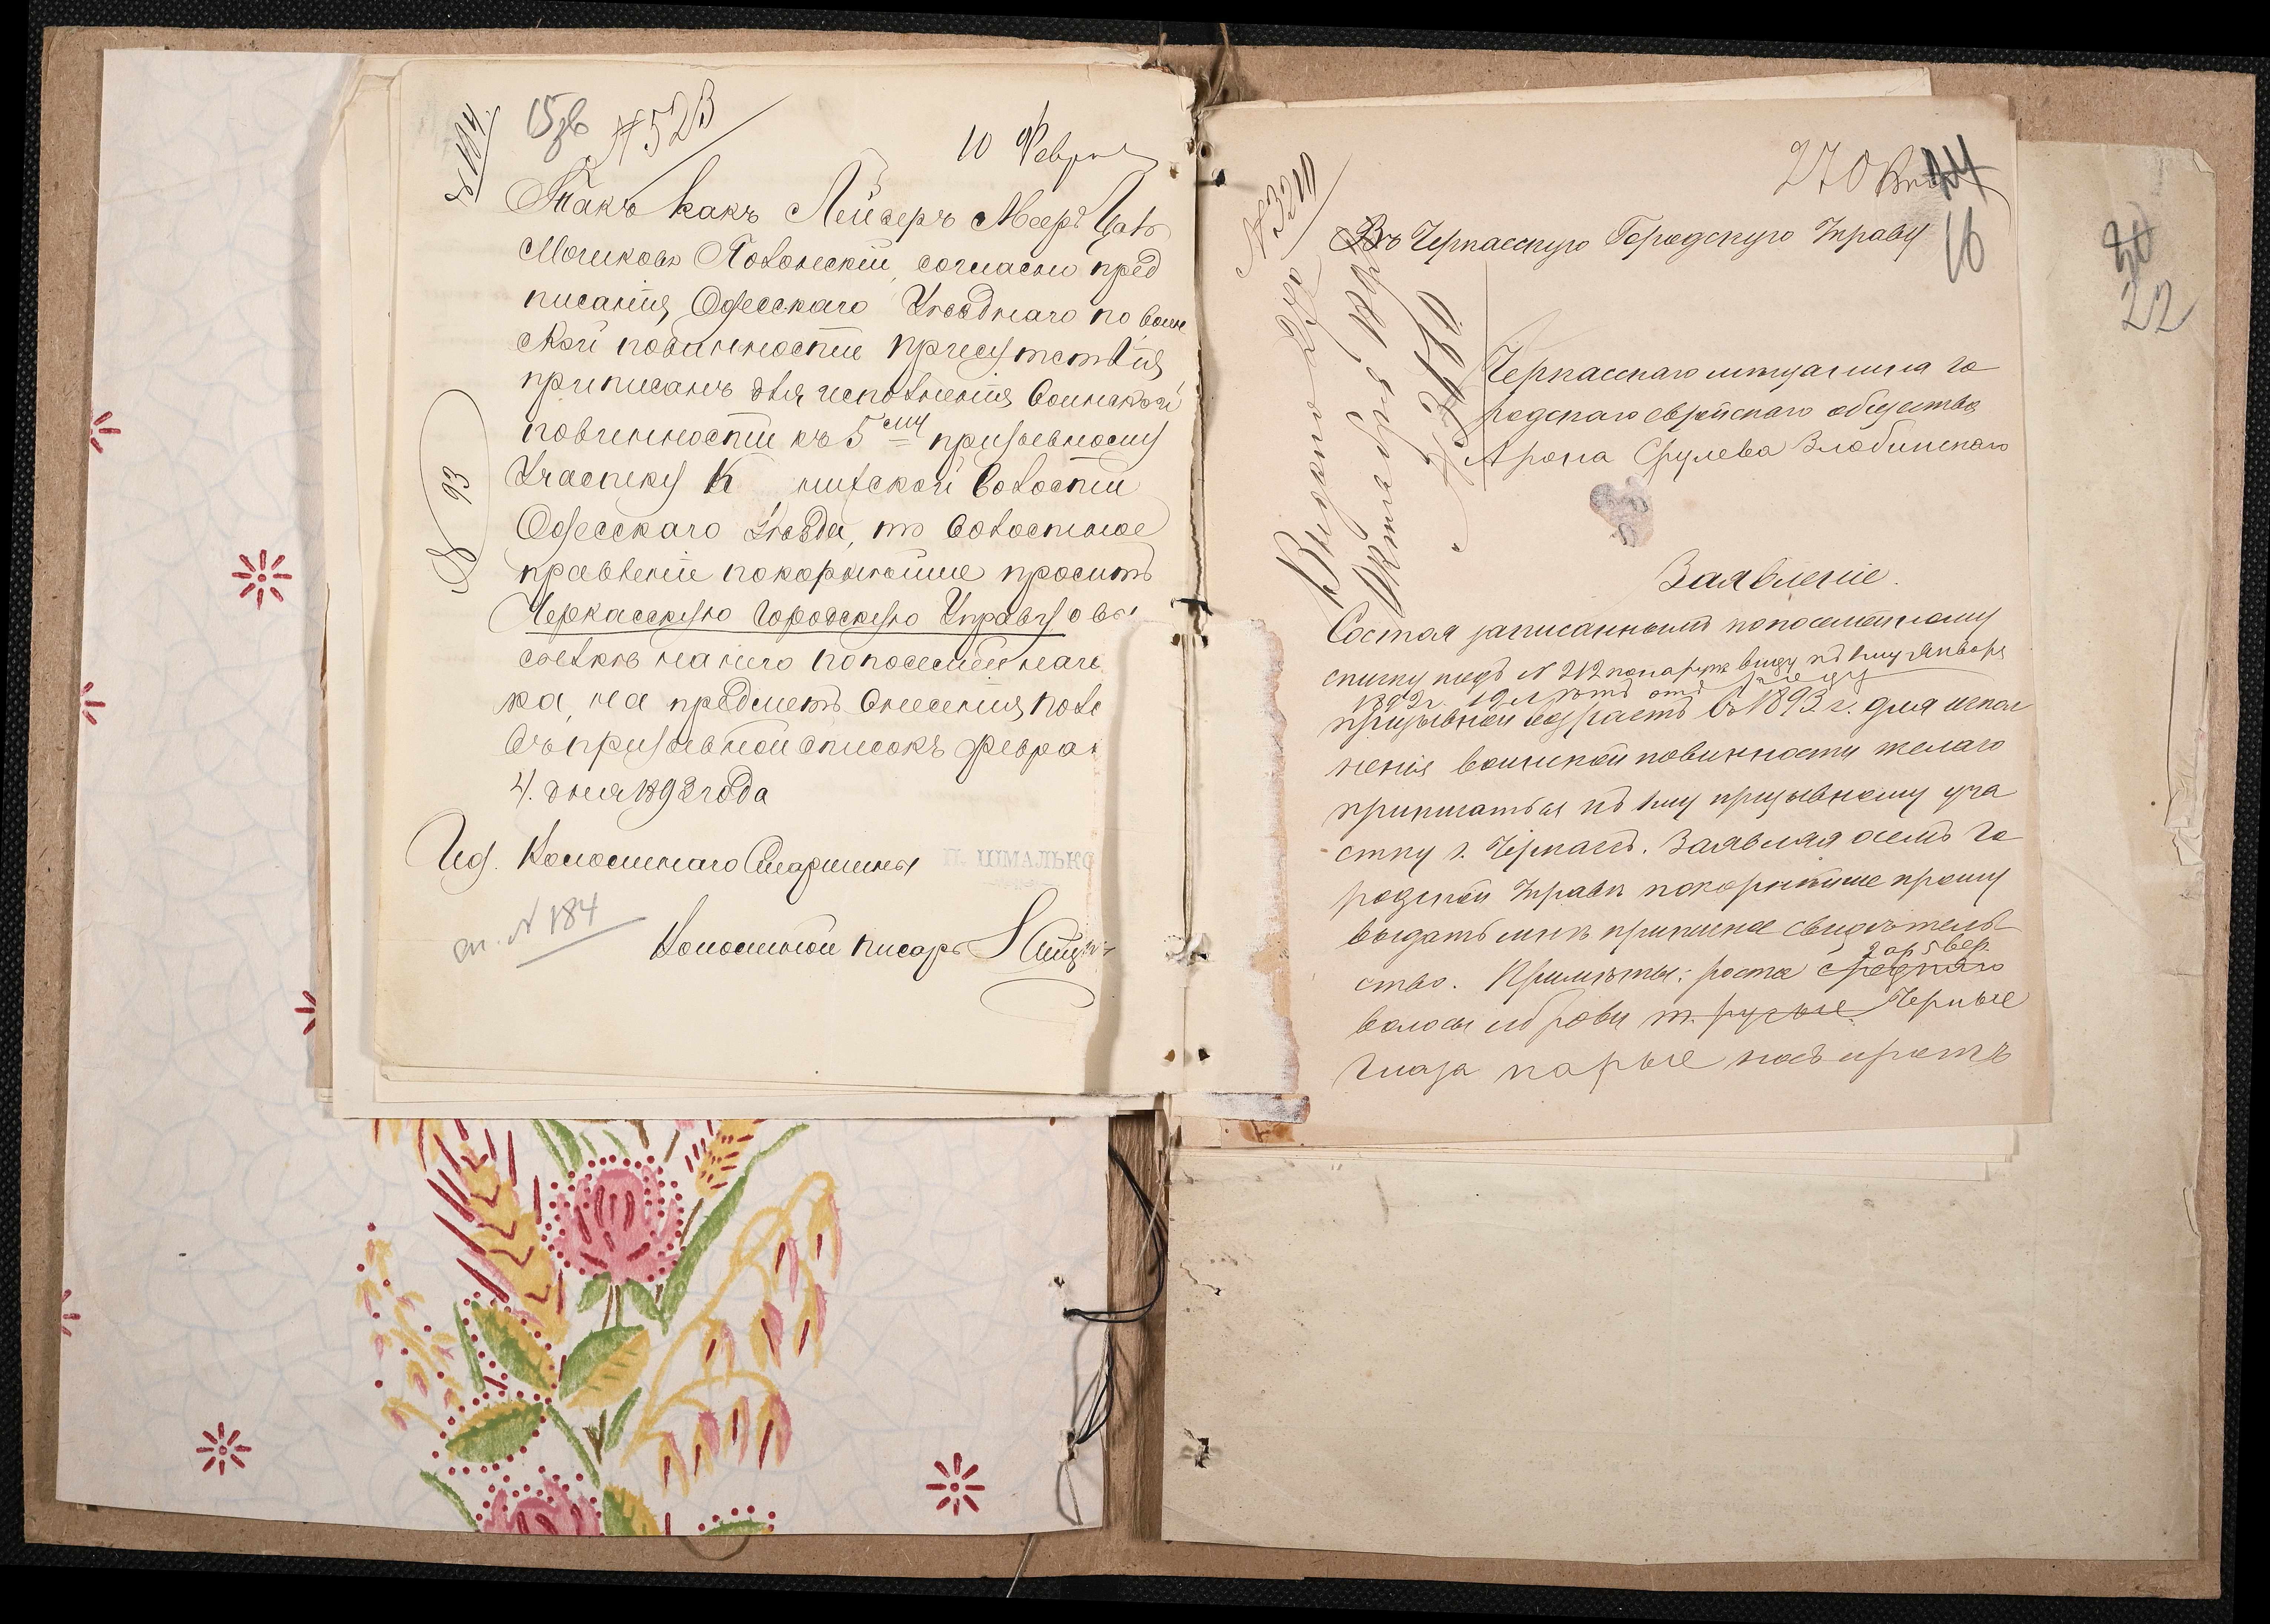 15 об
№ 523
10 Февраля
№ 184
Такъ какъ Лейзеръ Мееръ
Мошковъ согласно пред
писанія Одесскаго Уѣзднаго по воин
ской повинности присутствія
приписанъ для исполненія воинской
повинности къ 5му призывному
участку К
Одесскаго Уѣзда, то волостное
правленіе покорнѣйше проситъ
Черкасскую Городскую Управу о вы
сылкѣ на него посемейн
ка, на предметъ внесенія
въ призывной списокъ Февра
4. дня 1893 года
93
Волостнаго Старшины
П. ШМАЛЬКО
сп. № 184
Волостной писарь
270
24
16
20
22
№ 3210
Въ Черкасскую Городскую Управу
Черкасскаго мѣщанина го
родскаго еврейскаго общества
Арона Срулева Злобинскаго
Заявленіе.
Состоя записаннымъ по посемѣйному
списку подъ № 212 по наруж виду къ 1му Января
1892 г. 19 лѣтъ отъ роду
призывной возрастъ въ 1893 г. для испол
ненія воинской повинности желаю
приписаться къ 1му призывному уча
стку г. Черкасъ. Заявляя о семъ Го
родской Управѣ покорнѣйше прошу
выдать мнѣ приписное свидѣтель
ство. Примѣты: роста средняго 2 ар 5 вер.
волосы и брови т. русые Черные
глаза карые носъ и ротъ